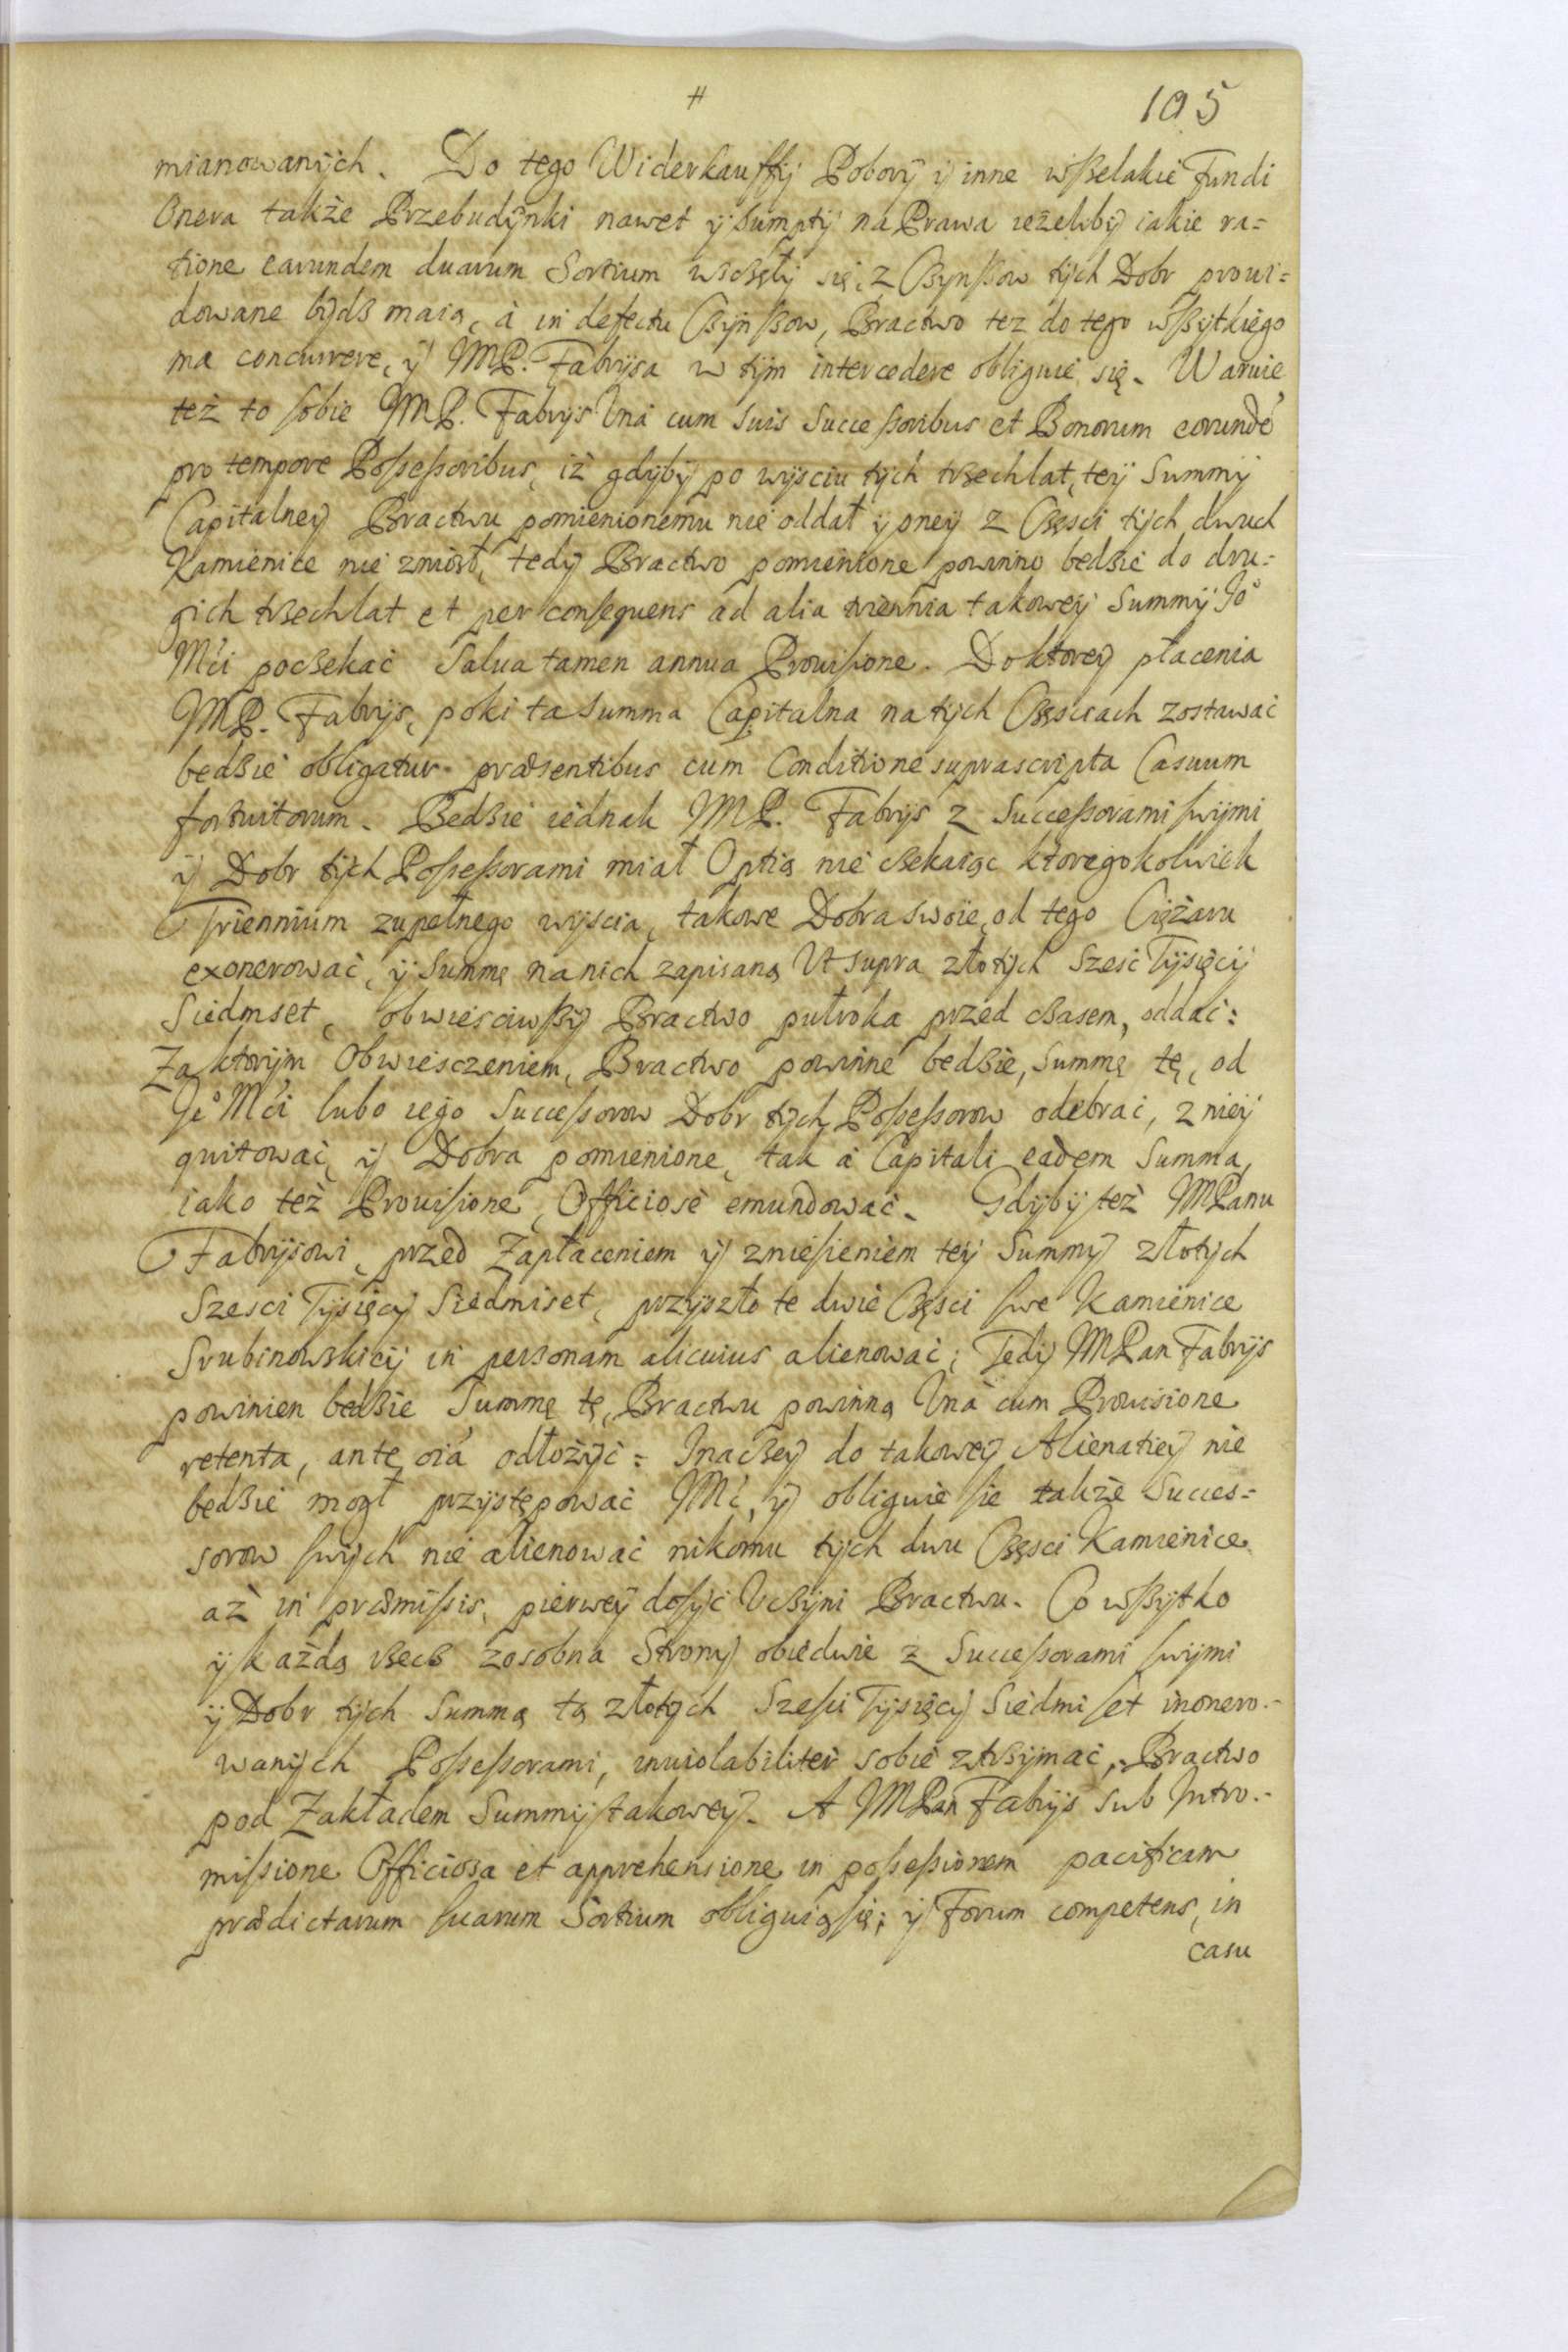 #
105
mianowanÿch. Do tego Widerkauffÿ Poborÿ ÿ inne wßelakie Fundi
Onera także Przebudÿnki nawet ÿ sumptÿ na Prawa ieżelibÿ iakie ra=
tione earundem duarum Sortium wsczęłÿ się, z Czÿnßow tÿch Dobr prowi=
dowane bÿdź maią, à in defectu Czÿnßow, Bractwo tez do tego wßÿtkiego
ma concurrere, ÿ JMP. Fabrÿsa w tÿm intercedere obliguie się. Waruie
też to sobie JMP. Fabrÿs Vna cum suis Succeßoribus et Bonorum eorundē
pro tempore Poßeßoribus, iż gdÿbÿ po wÿsciu tÿch trzechlat, teÿ Summÿ
Capitalneÿ Bractwu pomienionemu nie oddał ÿ oneÿ z Częsci tÿch dwuch
Kamienice nie zniosł, tedÿ Bractwo pomienione powinno bedzie do dru=
gich trzechlat et per consequens ad alia triennia takoweÿ Summÿ Jo
Mći poczekać Salua tamen annua Prouisione. Doktoreÿ płacenia
JMP. Fabrÿs, poki ta Summa Capitalna na tÿch Częsciach zostawać
bedzie obligatur præsentibus cum Conditione suprascripta Casuum
fortuitorum. Bedzie iednak JMP. Fabrÿs z Succeßorami swÿmi
ÿ Dobr tÿch Poßeßorami miał Optią nie czekaiąc ktoregokolwiek
Triennium zupełnego wÿscia, takowe Dobra swoie, od tego Ciężaru
exonerować, ÿ Summę na nich zapisaną Vt supra złotÿch Szesc Tÿsięcÿ
Siedmset, obwiesciwßÿ Bractwo pułroka przed czasem, oddać:
Za ktorÿm Obwiesczeniem, Bractwo powinne bedzie, Summę tę, od
Jeo Mći lubo iego Succeßorow Dobr tÿch Poßeßorow odebrać, z nieÿ
quitować, ÿ Dobra pomienione, tak à Capitali eadem Summa,
iako też Prouisione, Officiosè emundować. Gdÿbÿ też JMPanu
Fabrÿsowi, przed Zapłaceniem ÿ zniesieniem teÿ Summÿ złotÿch
Szesci Tÿsięcÿ Siedmiset, przÿszło te dwie Częsci swe Kamienice
Srubinowskieÿ in personam alicuius alienować; Tedÿ JMPan Fabrÿs
powinien bedzie Summę tę, Bractwu powinną Vnà cum Prouisione
retenta, ante oīa odłożÿć: Inaczeÿ do takoweÿ Alienatieÿ nie
będzie mogł przÿstępować JMć, ÿ obliguie sie także Succes=
sorow swÿch nie alienować nikomu tÿch dwu Częsci Kamienice
aż in præmißis, pierweÿ dosÿć Vczÿni Bractwu. Co wßÿtko
ÿ każdą rzecz zosobna Stronÿ obiedwie z Succeßorami swÿmi
ÿ Dobr tÿch Summą tą złotÿch Szesci Tÿsięcÿ Siedmi set inonero=
wanÿch Poßeßorami, inuiolabiliter sobie ztrzÿmać, Bractwo
pod Zakładem Summÿ takoweÿ. A JMPan Fabrÿs sub Intro=
mißione Officiosa et apprehensione in poßeßionem pacificam
prædictarum suarum Sortium obliguią się; ÿ Forum competens, in
casu